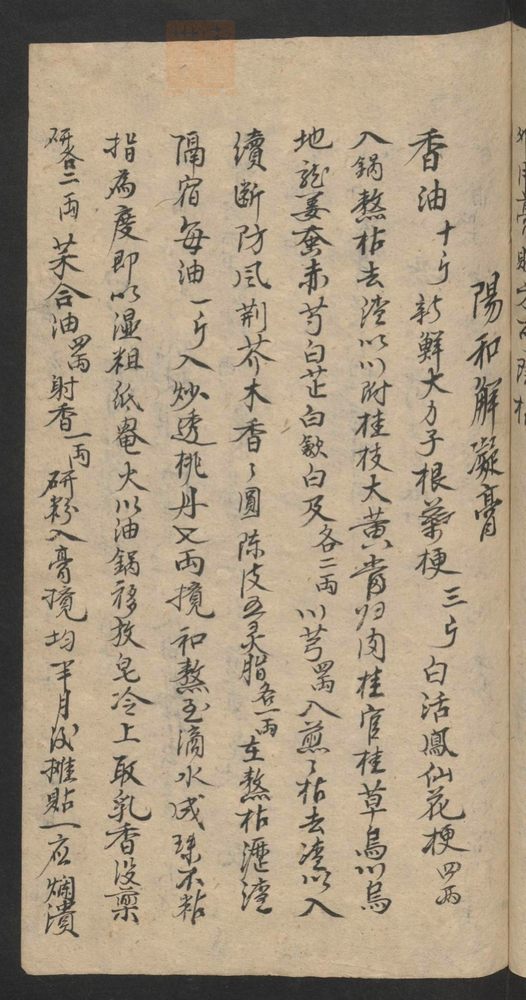 陽和解凝膏
香油十斤新鮮大力子根葉梗三斤白活鳳仙花梗四兩
入鍋熬枯去渣次以川附桂枝大黃當归肉桂官桂草烏川烏
地龍姜蚕赤芍白芷白歛白及各二兩川芎四兩入煎煎枯去渣次入
續断防风荆芥木香香圓陈皮五灵脂各一兩在熬枯瀝渣
隔宿每油一斤入炒透桃丹又兩攪和熬至滴水成珠不粘
指為度即以湿粗紙罨火以油鍋移放皂冷上取乳香没藥
研各二兩苏合油四兩射香一兩研粉入膏攪均半月後摊貼一应爛潰